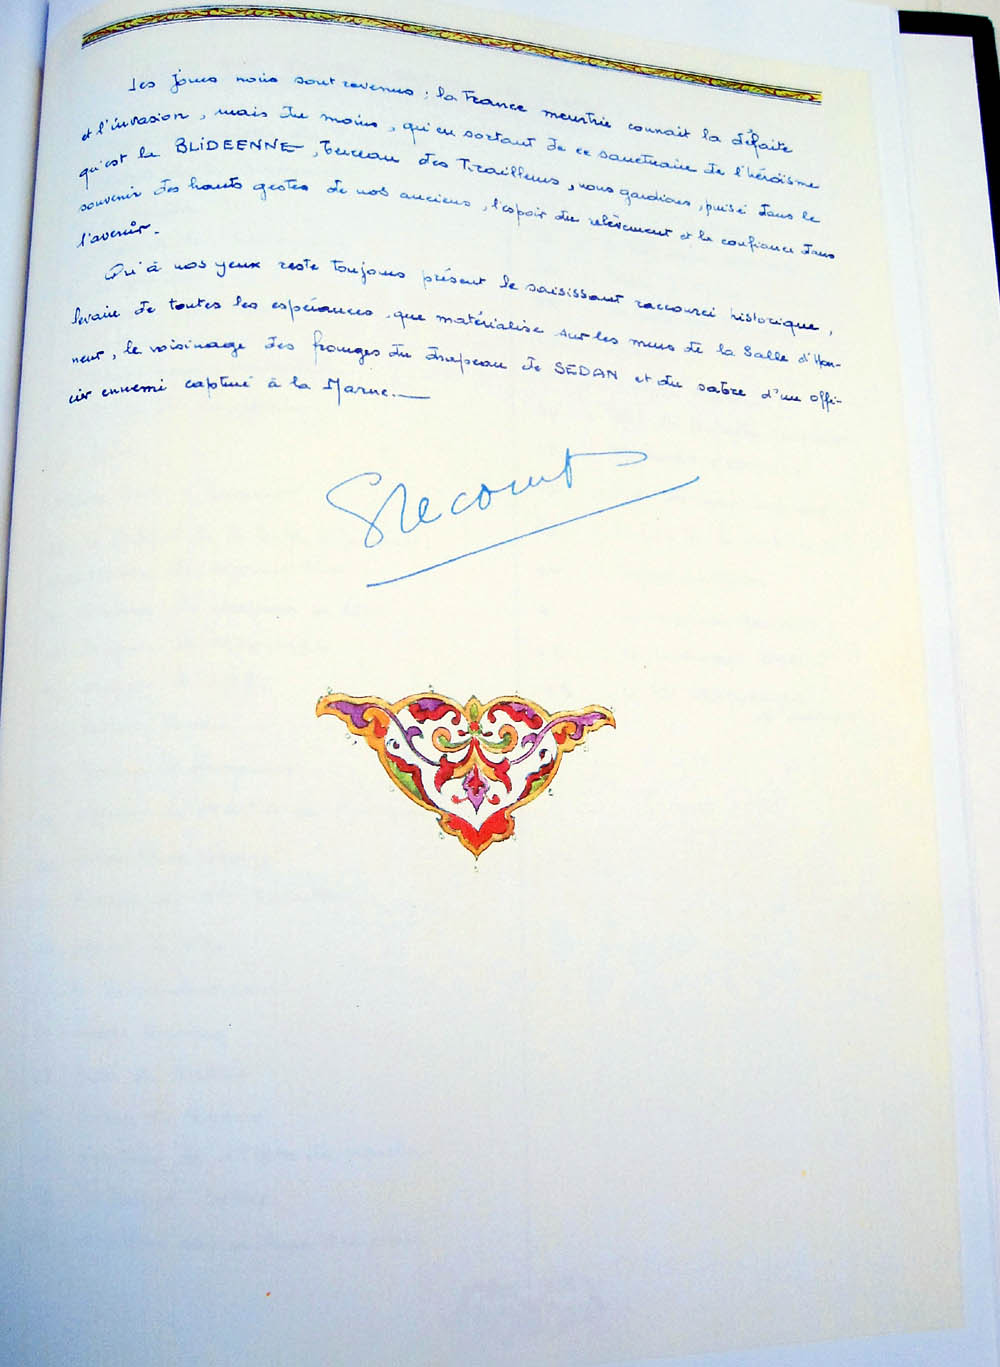 Les jours noirs sont revenus ; la France meurtrie connait la défaite
et l'invasion, mais du moins, qu'en sortant de ce sanctuaire de l'héroïsme
qu'est la BLIDEENNE, berceau des Tirailleurs, nous gardions, puisé dans le
souvenir des hauts gestes de nos anciens, l'espoir du relèvement et la confiance dans
l'avenir.
Qu'à nos yeux reste toujours présent le saisissant raccourci historique,
levain de toutes les espérances, que matérialise sur les murs de la Salle d'Hon-
neur, le voisinage des franges du drapeau de SEDAN et du sabre d'un offi-
cier ennemi capturé à la Marne.